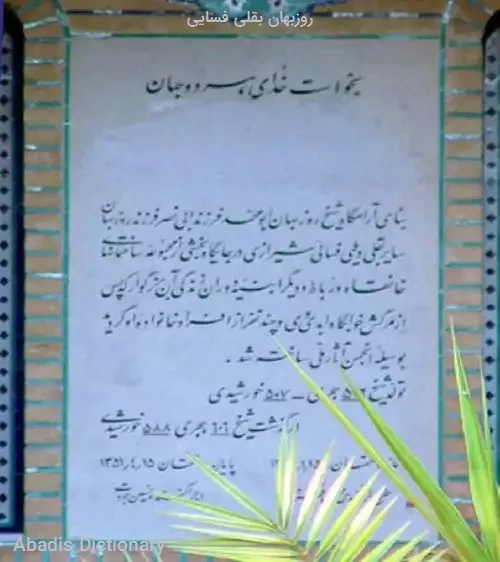 روزبهان بقلی فسایی
بخواست خدای هر دو جهان
بنای آرامگاه شیخ روزبهان ابومحمد فرزند ابی نصر فرزند روزبهان
بقلی دیلمی فسائی شیرازی در جایگاه بخشی از مجموعه ساختمانهای
خانقاه و رباط و دیگر ابنیه دوران زندگی آن بزرگوار که پس
از مرگش خوابگاه ابدی وی و چند تن از افراد خانواده او گردید
بوسیله انجمن آثار ملی ساخته شد .
تولد شیخ هجری - ۵۰۷ خورشیدی
درگذشت شیخ ۶۰۶ هجری ۵۸۸ خورشیدی
پایان ساختمان ۱۳۵۱،۴،۱۵
Abadis Dictionary